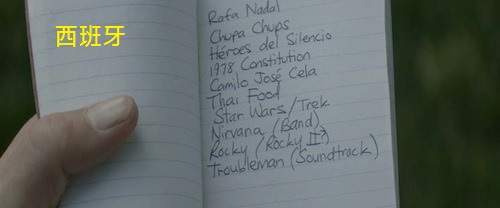 西班牙
Rafa Nadal
Chupa Chups
Héroes del Silencio
1978 Constitution
Camilo José Cela
Thai Food
Star Wars/Trek
Nirvana (Band)
Rocky (Rocky II?)
Troubleman (Soundtrack)